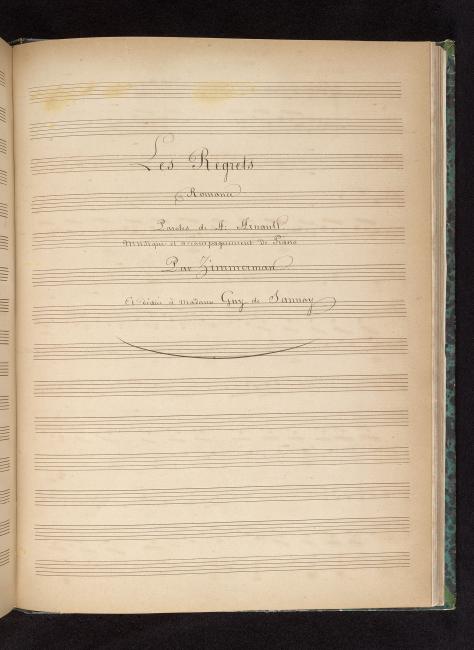 Les Regrets
Romance
Paroles de A. Arnault
Musique et accompagnement de Piano
Par Zimmerman
Et dédié à madame Guy de Sannoy